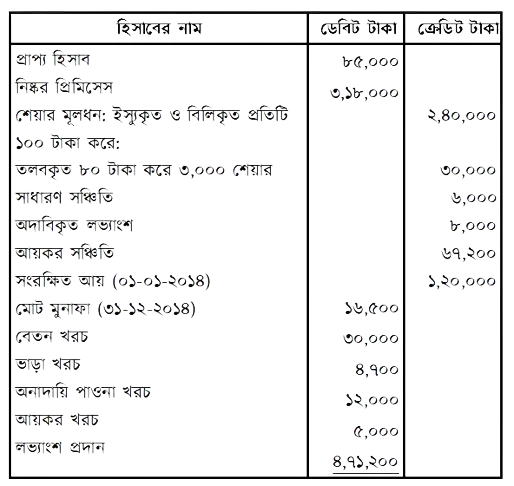 হিসাবের নাম ডেবিট টাকা ক্রেডিট টাকা
প্রাপ্য হিসাব ৮৫,০০০
নিষ্কর প্রিমিসেস ৩,১৮,০০০
শেয়ার মূলধন: ইস্যুকৃত ও বিলিকৃত প্রতিটি ২,৪০,০০০
১০০ টাকা করে:
তলবকৃত ৮০ টাকা করে ৩,০০০ শেয়ার ৩০,০০০
সাধারণ সঞ্চিতি ৬,০০০
অদাবিকৃত লভ্যাংশ ৮,০০০
আয়কর সঞ্চিতি ৬৭,২০০
সংরক্ষিত আয় (০১-০১-২০১৪) ১,২০,০০০
মোট মুনাফা (৩১-১২-২০১৪) ১৬,৫০০
বেতন খরচ ৩০,০০০
ভাড়া খরচ ৪,৭০০
অনাদায়ি পাওনা খরচ ১২,০০০
আয়কর খরচ ৫,০০০
লভ্যাংশ প্রদান ৪,৭১,২০০